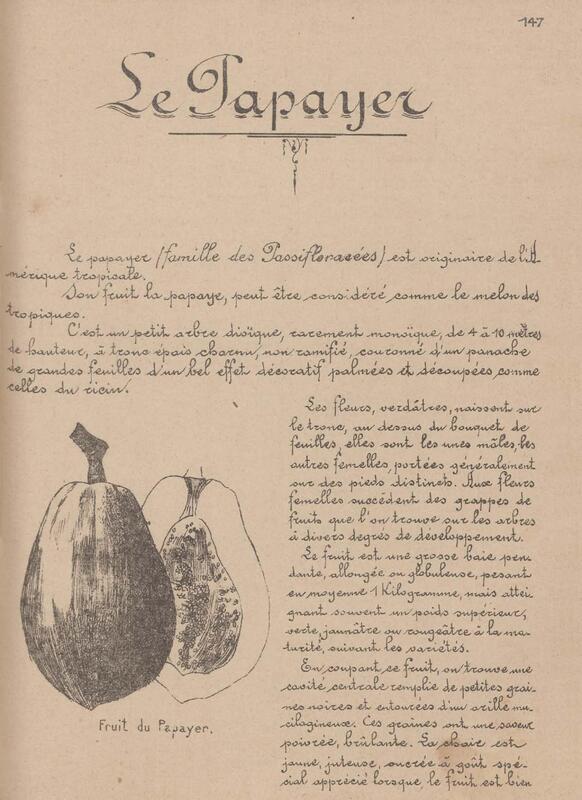 147
Le Papayer
Le papayer (famille des Passifloracées) est originaire de l'A
mérique tropicale.
Son fruit la papaye, peut être considéré comme le melon des
tropiques.
C'est un petit arbre dioïque, rarement monoïque, de 4 à 10 mètres
de hauteur, à tronc épais charnu, non ramifié, couronné d'un panache
de grandes feuilles d'un bel effet décoratif palmées et découpées, comme
celles du ricin.
Les fleurs, verdâtres, naissent sur
le tronc, au dessus du bouquet de
feuilles, elles sont les unes mâles, les
autres femelles, portées généralement
sur des pieds distincts. Aux fleurs
femelles succèdent des grappes de
fruits que l'on trouve sur les arbres
à divers degrés de développement.
Le fruit est une grosse baie pen
dante, allongée ou globuleuse, pesant
en moyenne 1 Kilogramme, mais attei
gnant souvent un poids supérieur,
verte, jaunâtre ou rougeâtre à la ma-
turité, suivant les variétés.
En coupant ce fruit, on trouve une
cavité centrale remplie de petites grai-
nes noires et entourées d'un arille mu-
cilagineux. Ces graines ont une saveur
poivrée, brûlante. La chair est
jaune, juteuse, sucrée à goût spé-
cial apprécié lorsque le fruit est bien
Fruit du Papayer.